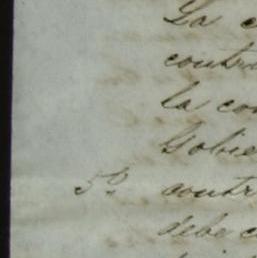 La c
contr
la con
Gobie
5º contr
debe c